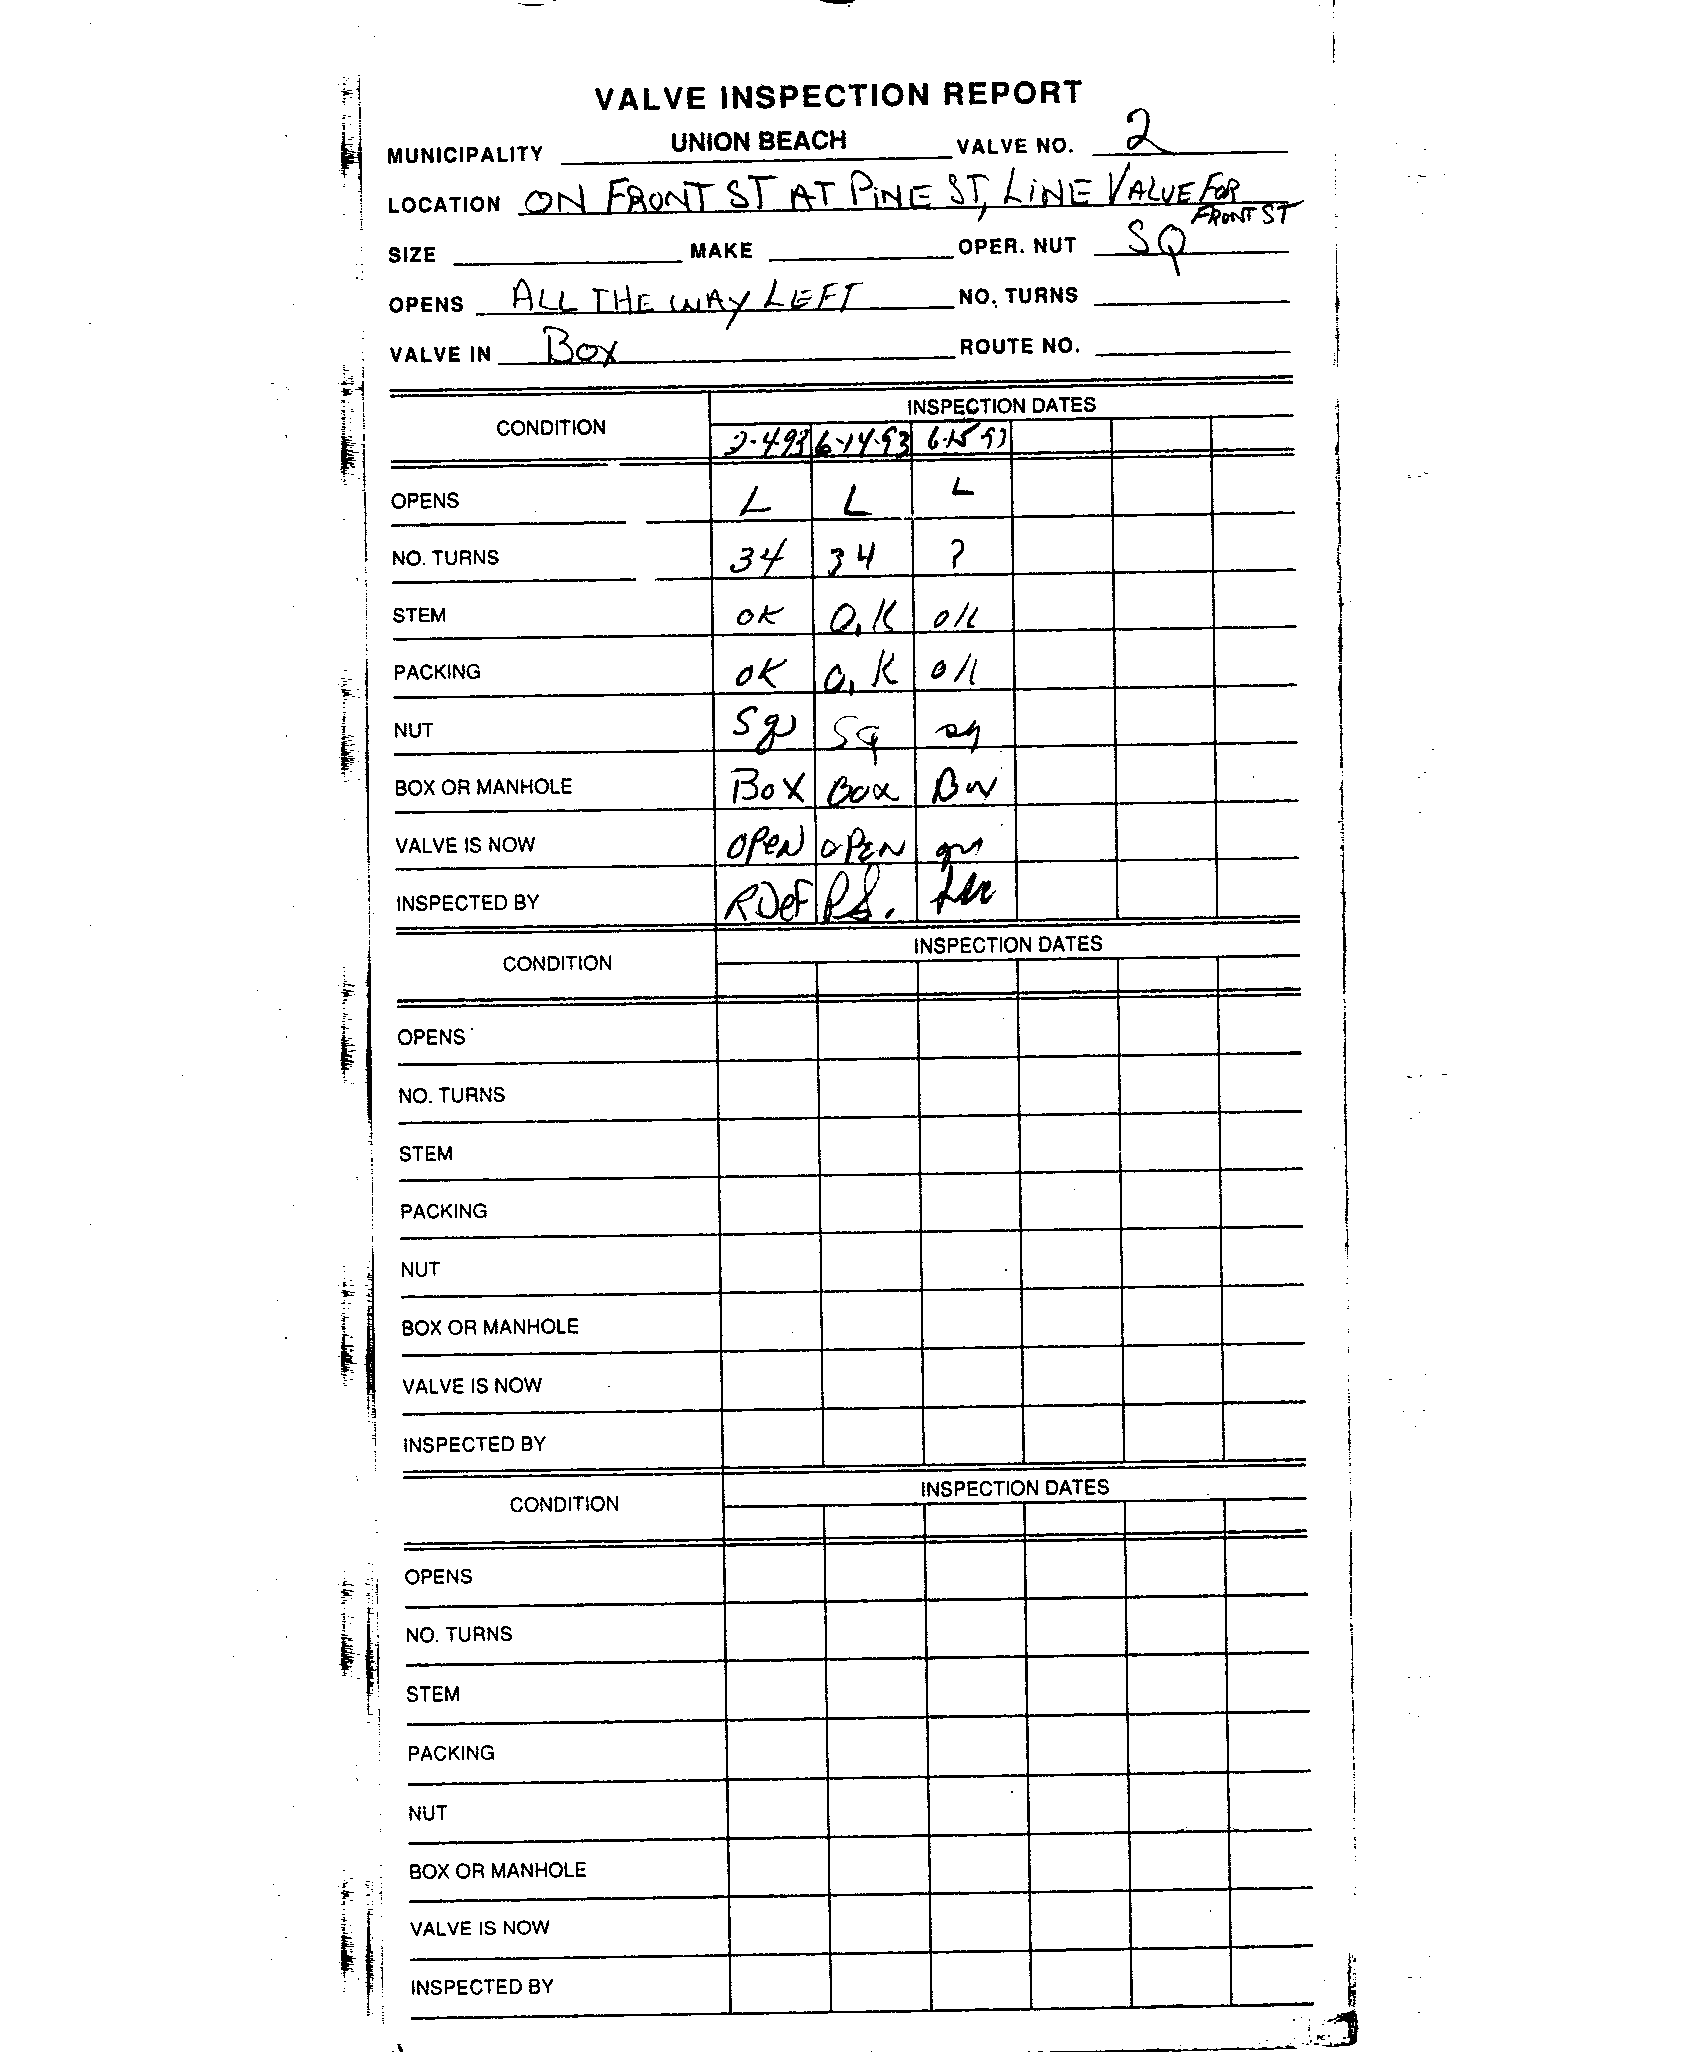 VALVE INSPECTION REPORT
MUNICIPALITY UNION BEACH VALVE NO. 2
LOCATION ON FRONT ST AT PINE ST, LINE VALUE FOR
FRONT ST
SIZE MAKE OPER. NUT SQ
OPENS ALL THE WAY LEFT NO. TURNS
VALVE IN BOX ROUTE NO.
INSPECTION DATES
CONDITION 2-4-93 6-14-93 6-15
OPENS L L L
NO. TURNS 34 34 ?
STEM OK O.K OK
PACKING OK O.K OK
NUT Sq SQ sq
BOX OR MANHOLE BOX BOX Box
VALVE IS NOW OPEN OPEN
INSPECTED BY RDeF P.S.
INSPECTION DATES
CONDITION
OPENS
NO. TURNS
STEM
PACKING
NUT
BOX OR MANHOLE
VALVE IS NOW
INSPECTED BY
INSPECTION DATES
CONDITION
OPENS
NO. TURNS
STEM
PACKING
NUT
BOX OR MANHOLE
VALVE IS NOW
INSPECTED BY